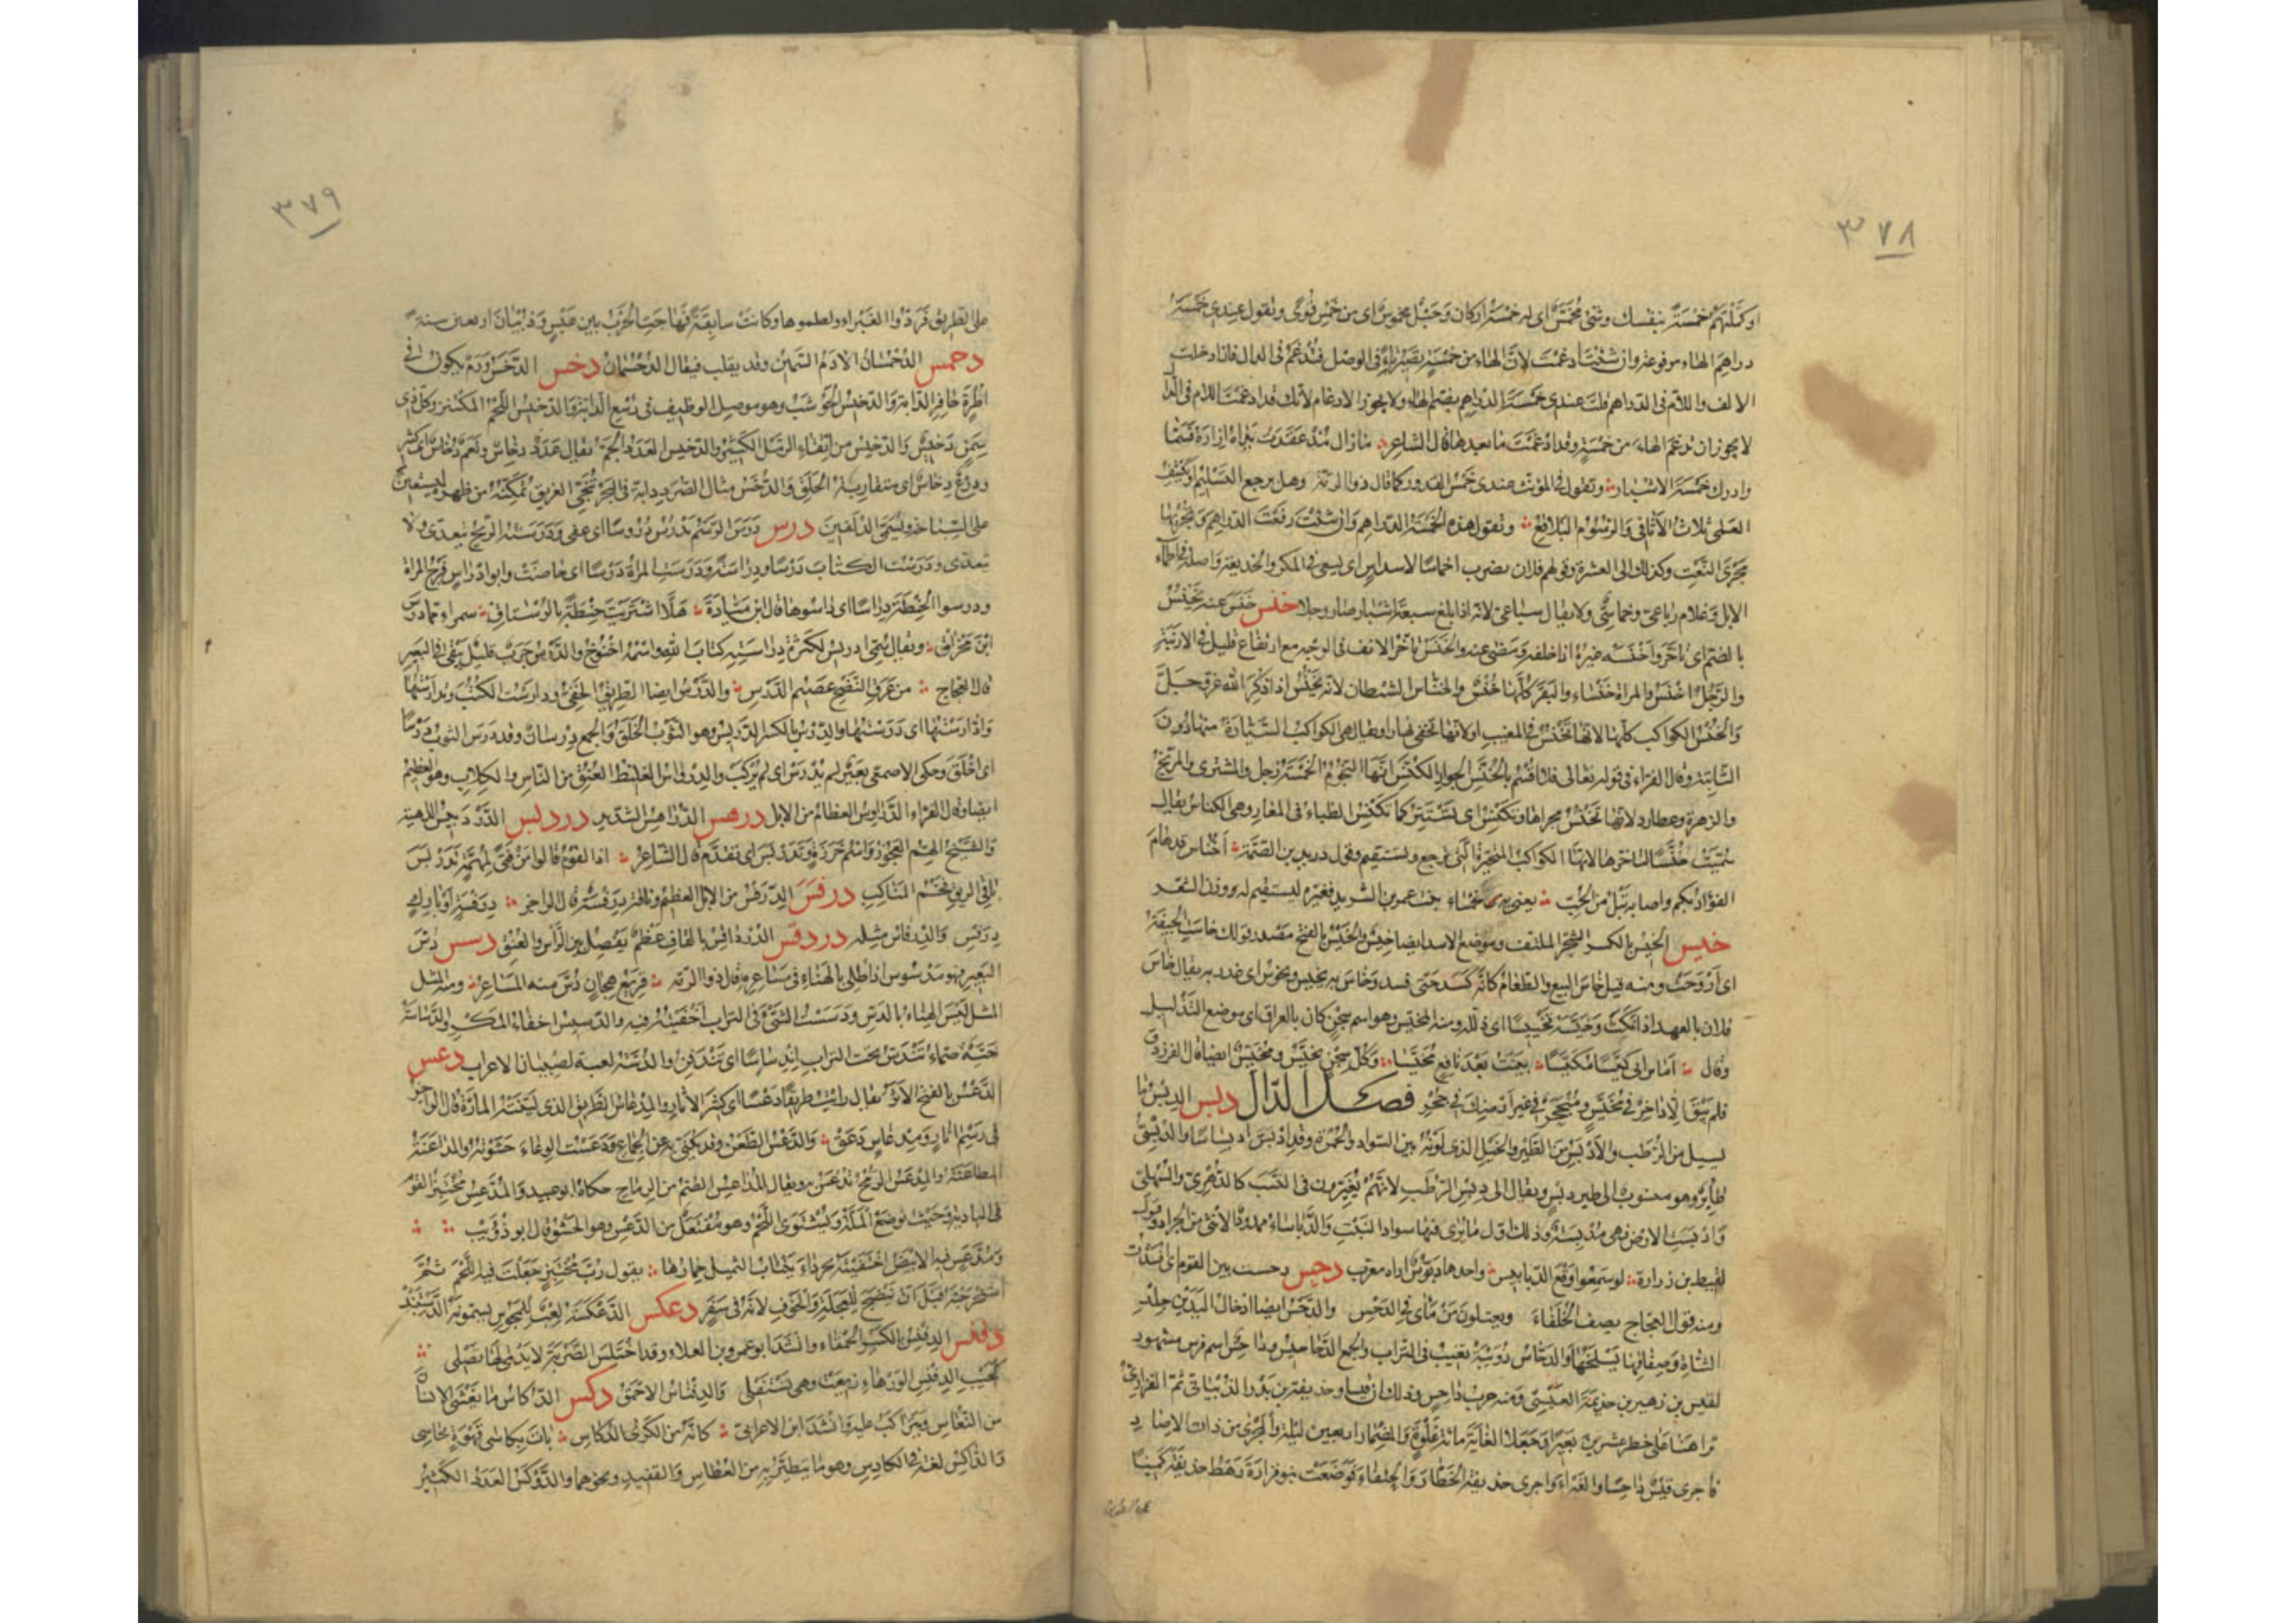 ٣٧٨
او كملتهم خمسة بنفسك وشئ مخمس اى له خمسة اركان وحبل مخموس اى من خمس قوى وتقول عندى خمسة
دراهم الهاء مرفوعة وان شئت ادغمت لان الهاء من خمسة تصير تاء فى الوصل فتدغم فى الدال فاذا دخلت
الالف واللام فى الدراهم قلت عندى خمسة الدراهم بضم الهاء ولا يجوز الادغام لانك قد ادغمت اللام فى الدال
لا يجوز ان تدغم الهاء من خمسة وقد ادغمت ما بعدها قال الشاعر ما زال مذ عقدت يداه ازاره فسما
وادرك خمسة الاشبار وتقول فى المؤنث عندى خمس القدور كما قال ذو الرمة وهل يرجع التسليم او يكشف
العمى ثلاث الاثافى والرسوم البلاقع وتقول هذه الخمسة الدراهم وان شئت رفعت الدراهم وتجريها
مجرى النعت وكذلك الى العشرة وقولهم فلان يضرب اخماسا لاسداس اى يسعى فى المكر والخديعة واصله فى اظماء
الابل وغلام رباعى وخماسى ولا يقال سباعى لانه اذا بلغ سبعة اشبار صار رجلا خنس خنس عنه يخنس
بالضم اى تاخر واخنسه غيره اذا خلفه ومضى عنه والخنس تاخر الانف فى الوجه مع ارتفاع قليل فى الارنبة
والرجل اخنس والمراة خنساء والبقر كلها خنس والخناس الشيطان لانه يخنس اذا ذكر الله عز وجل
والخنس الكواكب كلها لانها تخنس فى المغيب او لانها تخفى نهارا ويقال هى الكواكب السيارة منها دون
الثابتة وقال الفراء فى قوله تعالى فلا اقسم بالخنس الجوار الكنس انها النجوم الخمسة زحل والمشترى والمريخ
والزهرة وعطارد لانها تخنس فى مجراها وتكنس اى تستتر كما تكنس الظباء فى المغار وهى الكناس يقال
سميت خنسا لتاخرها لانها الكواكب المتحيرة التى ترجع وتستقيم وقول دريد بن الصمة اخناس قد هام
الفؤاد بكم واصابه تبل من الحب يعنى به خنساء بنت عمرو بن الشريد فغيره ليستقيم له وزن الشعر
خيس الخيس بالكسر الشجر الملتف وموضع الاسد ايضا خيس والخيس بالفتح مصدر قولك خاست الجيفة
اى اروحت ومنه قيل خاس البيع والطعام كانه كسد حتى فسد وخاس به يخيس ويخوس اى غدر به يقال خاس
فلان بالعهد اذا نكث وخيسه تخييسا اى ذلله ومنه المخيس وهو اسم سجن كان بالعراق اى موضع التذليل
وقال اما ترانى كيسا مكيسا بنيت بعد نافع مخيسا وكل سجن مخيس ومخيس ايضا قال الفرزدق
فلم يبق الا داخر فى مخيس ومنجحر فى غير ارضك فى جحر فصل الدال دبس الدبس ما
يسيل من الرطب والادبس من الطير والخيل الذى لونه بين السواد والحمرة وقد ادبس ادبساسا والدبسى
طائر وهو منسوب الى طير دبس ويقال الى دبس الرطب لانهم يغيرون فى النسب كالدهرى والسهلى
وادبست الارض فهى مدبسة وذلك اول ما يرى فيها سواد النبت والدباساء ممدودا الانثى من الجراد وقول
لقيط بن زرارة لو سمعوا وقع الدبابيس واحدها دبوس اراه معرب دحس دحست بين القوم اى افسدت
ومنه قول العجاج يصف الخلفاء ويعتلون من ماى فى الدحس والدحس ايضا ادخال اليد بين جلد
الشاة وصفاقها يسلخها والدحاس دويبة تغيب فى التراب والجمع الدحاحيس وداحس اسم فرس مشهور
لقيس بن زهير بن جذيمة العبسى ومنه حرب داحس وذلك ان قيسا وحذيفة بن بدر الذبيانى ثم الفزارى
تراهنا على خطر عشرين بعيرا وجعلا الغاية مائة غلوة والمضمار اربعين ليلة والمجرى من ذات الاصاد
فاجرى قيس داحسا والغبراء واجرى حذيفة الخطار والحنفاء فوضعت بنو فزارة رهط حذيفة كمينا
٣٧٩
على الطريق فردوا الغبراء ولطموها وكانت سابقة فهاجت الحرب بين عبس وذبيان اربعين سنة
دحمس الدحمسان الادم السمين وقد يقلب فيقال الدحسمان دخس الدخس ورم يكون فى
اطرة حافر الدابة والدخيس الحوشب وهو موصل الوظيف فى رسغ الدابة والدخيس اللحم المكتنز وكل ذى
سمن دخيس والدخيس من انقاء الرمل الكثير والدخيس العدد الجم يقال عدد دخاس ونعم دخاس اى كثير
ودرع دخاس اى متقاربة الحلق والدخس مثال الصرد دابة فى البحر تنجى الغريق تمكنه من ظهرها ليستعين
على السباحة وتسمى الدلفين درس درس الرسم يدرس دروسا اى عفى ودرسته الريح يتعدى ولا
يتعدى ودرست الكتاب درسا ودراسة ودرست المراة دروسا اى حاضت وابو ادراس فرج المراة
ودرسوا الحنطة دراسا اى داسوها قال ابن ميادة هلا اشتريت حنطة بالرستاق سمراء مما درس
ابن مخراق ويقال سمى ادريس لكثرة دراسته كتاب الله واسمه اخنوخ والدرس جرب قليل يبقى فى البعير
قال العجاج من عرق النضح عصيم الدرس والدرس ايضا الطريق الخفى ودارست الكتب وتدارستها
وادارستها اى درستها والدرس بالكسر الدريس وهو الثوب الخلق والجمع درسان وقد درس الثوب درسا
اى اخلق وحكى الاصمعى بعير لم يدرس اى لم يركب والدرواس الغليظ العنق من الناس والكلاب وهو العظيم
ايضا وقال الفراء الدراوس العظام من الابل درهس الدراهس الشديد دردبس الدردبيس الداهية
والشيخ الهم العجوز واسم خرزة وتدربس اى تقدم قال الشاعر اذا القوم قالوا من فتى لمهمة تدربس
باقى الريق فخم المناكب درفس الدرفس من الابل العظيم وناقة درفسة قال الراجز درفسة او بازل
درفس والدرفاس مثله دردقس الدرداقس بالقاف عظم يفصل بين الراس والعنق دسس دس
البعير فهو مدسوس اذا طلى بالهناء فى مساعره قال ذو الرمة قريع هجان دس منه المساعر ومنه المثل
المثل ليس الهناء بالدس ودسست الشئ فى التراب اخفيته فيه والدسيس اخفاء المكر والدساسة
حية صماء تندس تحت التراب اندساسا اى تندفن والدسة لعبة لصبيان الاعراب دعس
الدعس بالفتح الاثر يقال رايت طريقا دعسا اى كثير الاثار والمدعاس الطريق الذى لينته المارة قال الراجز
فى رسم اثار ومدعاس دعق والدعس الطعن وقد يكنى به عن الجماع ودعست الوعاء حشوته والمداعسة
المطاعنة والمدعس الرمح يدعس به ويقال المداعس الصم من الرماح حكاه ابو عبيد والمدعس مختبز القوم
فى البادية وحيث توضع الملة ويشتوى اللحم وهو مفتعل من الدعس وهو الحشو قال ابو ذؤيب
ومدعس فيه الانيض اختفيته بجرداء ينتاب الثميل حمارها يقول رب مختبز جعلت فيه اللحم ثم
استخرجته قبل ان ينضج للعجلة والخوف لانه فى سفر دعكس الدعكسة لعب للمجوس يسمونه الدستبند
دفنس الدفنس بالكسر الحمقاء وانشد ابو عمرو بن العلاء وقد اختلس الضربة لا يدمى لها نصلى
كجيب الدفنس الورهاء ريعت وهى تستفلى والدفناس الاحمق دكس الدكاس ما يغشى الانسان
من النعاس ويتراكب عليه وانشد ابن الاعرابى كانه من الكرى الدكاس بات بكاسى قهوة يحاسى
والداكس لغة فى الكادس وهو ما يتطير به من العطاس والقعيد ونحوهما والدوكس العدد الكثير